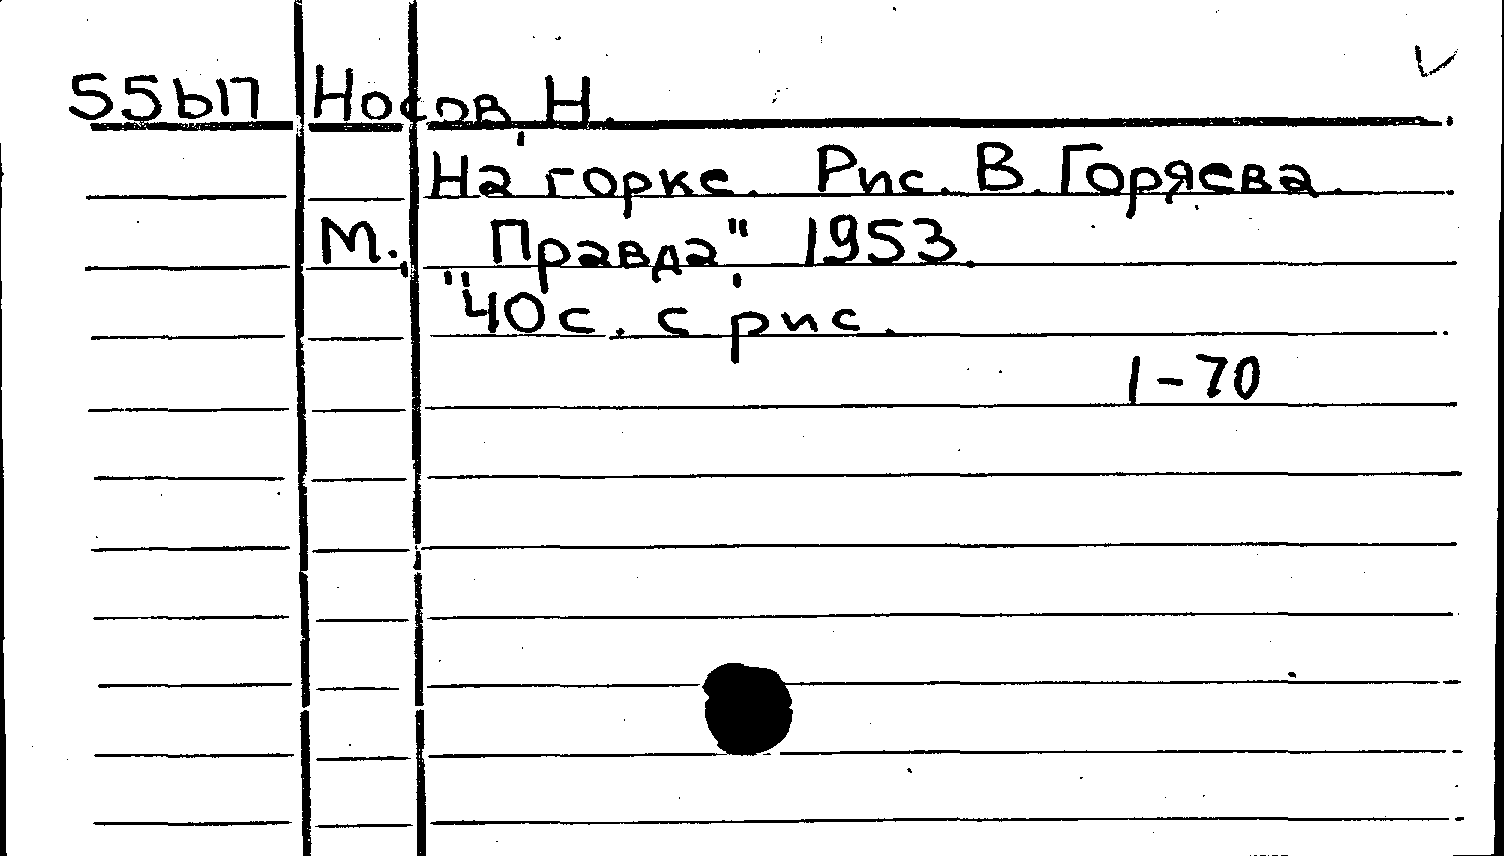 55ЬП Носов, Н.
На горке. Рис. В. Горяева.
М., "Правда", 1953.
40 с. с рис.
1-70